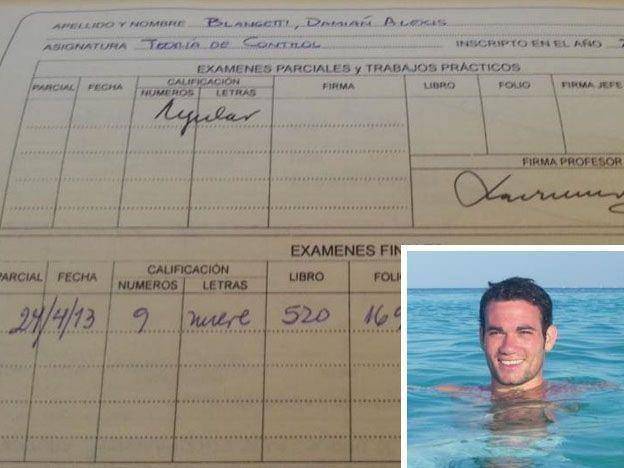 APELLIDO Y NOMBRE BLANGETTI, DAMIAN ALEXIS
ASIGNATURA TEORÍA DE CONTROL INSCRIPTO EN EL AÑO
EXAMENES PARCIALES y TRABAJOS PRÁCTICOS
PARCIAL FECHA CALIFICACIÓN FIRMA LIBRO FOLIO FIRMA JEFE
NUMEROS LETRAS
Regular
FIRMA PROFESOR
EXAMENES FIN
PARCIAL FECHA CALIFICACIÓN LIBRO FOLI
NUMEROS LETRAS
24/4/13 9 nueve 520 169